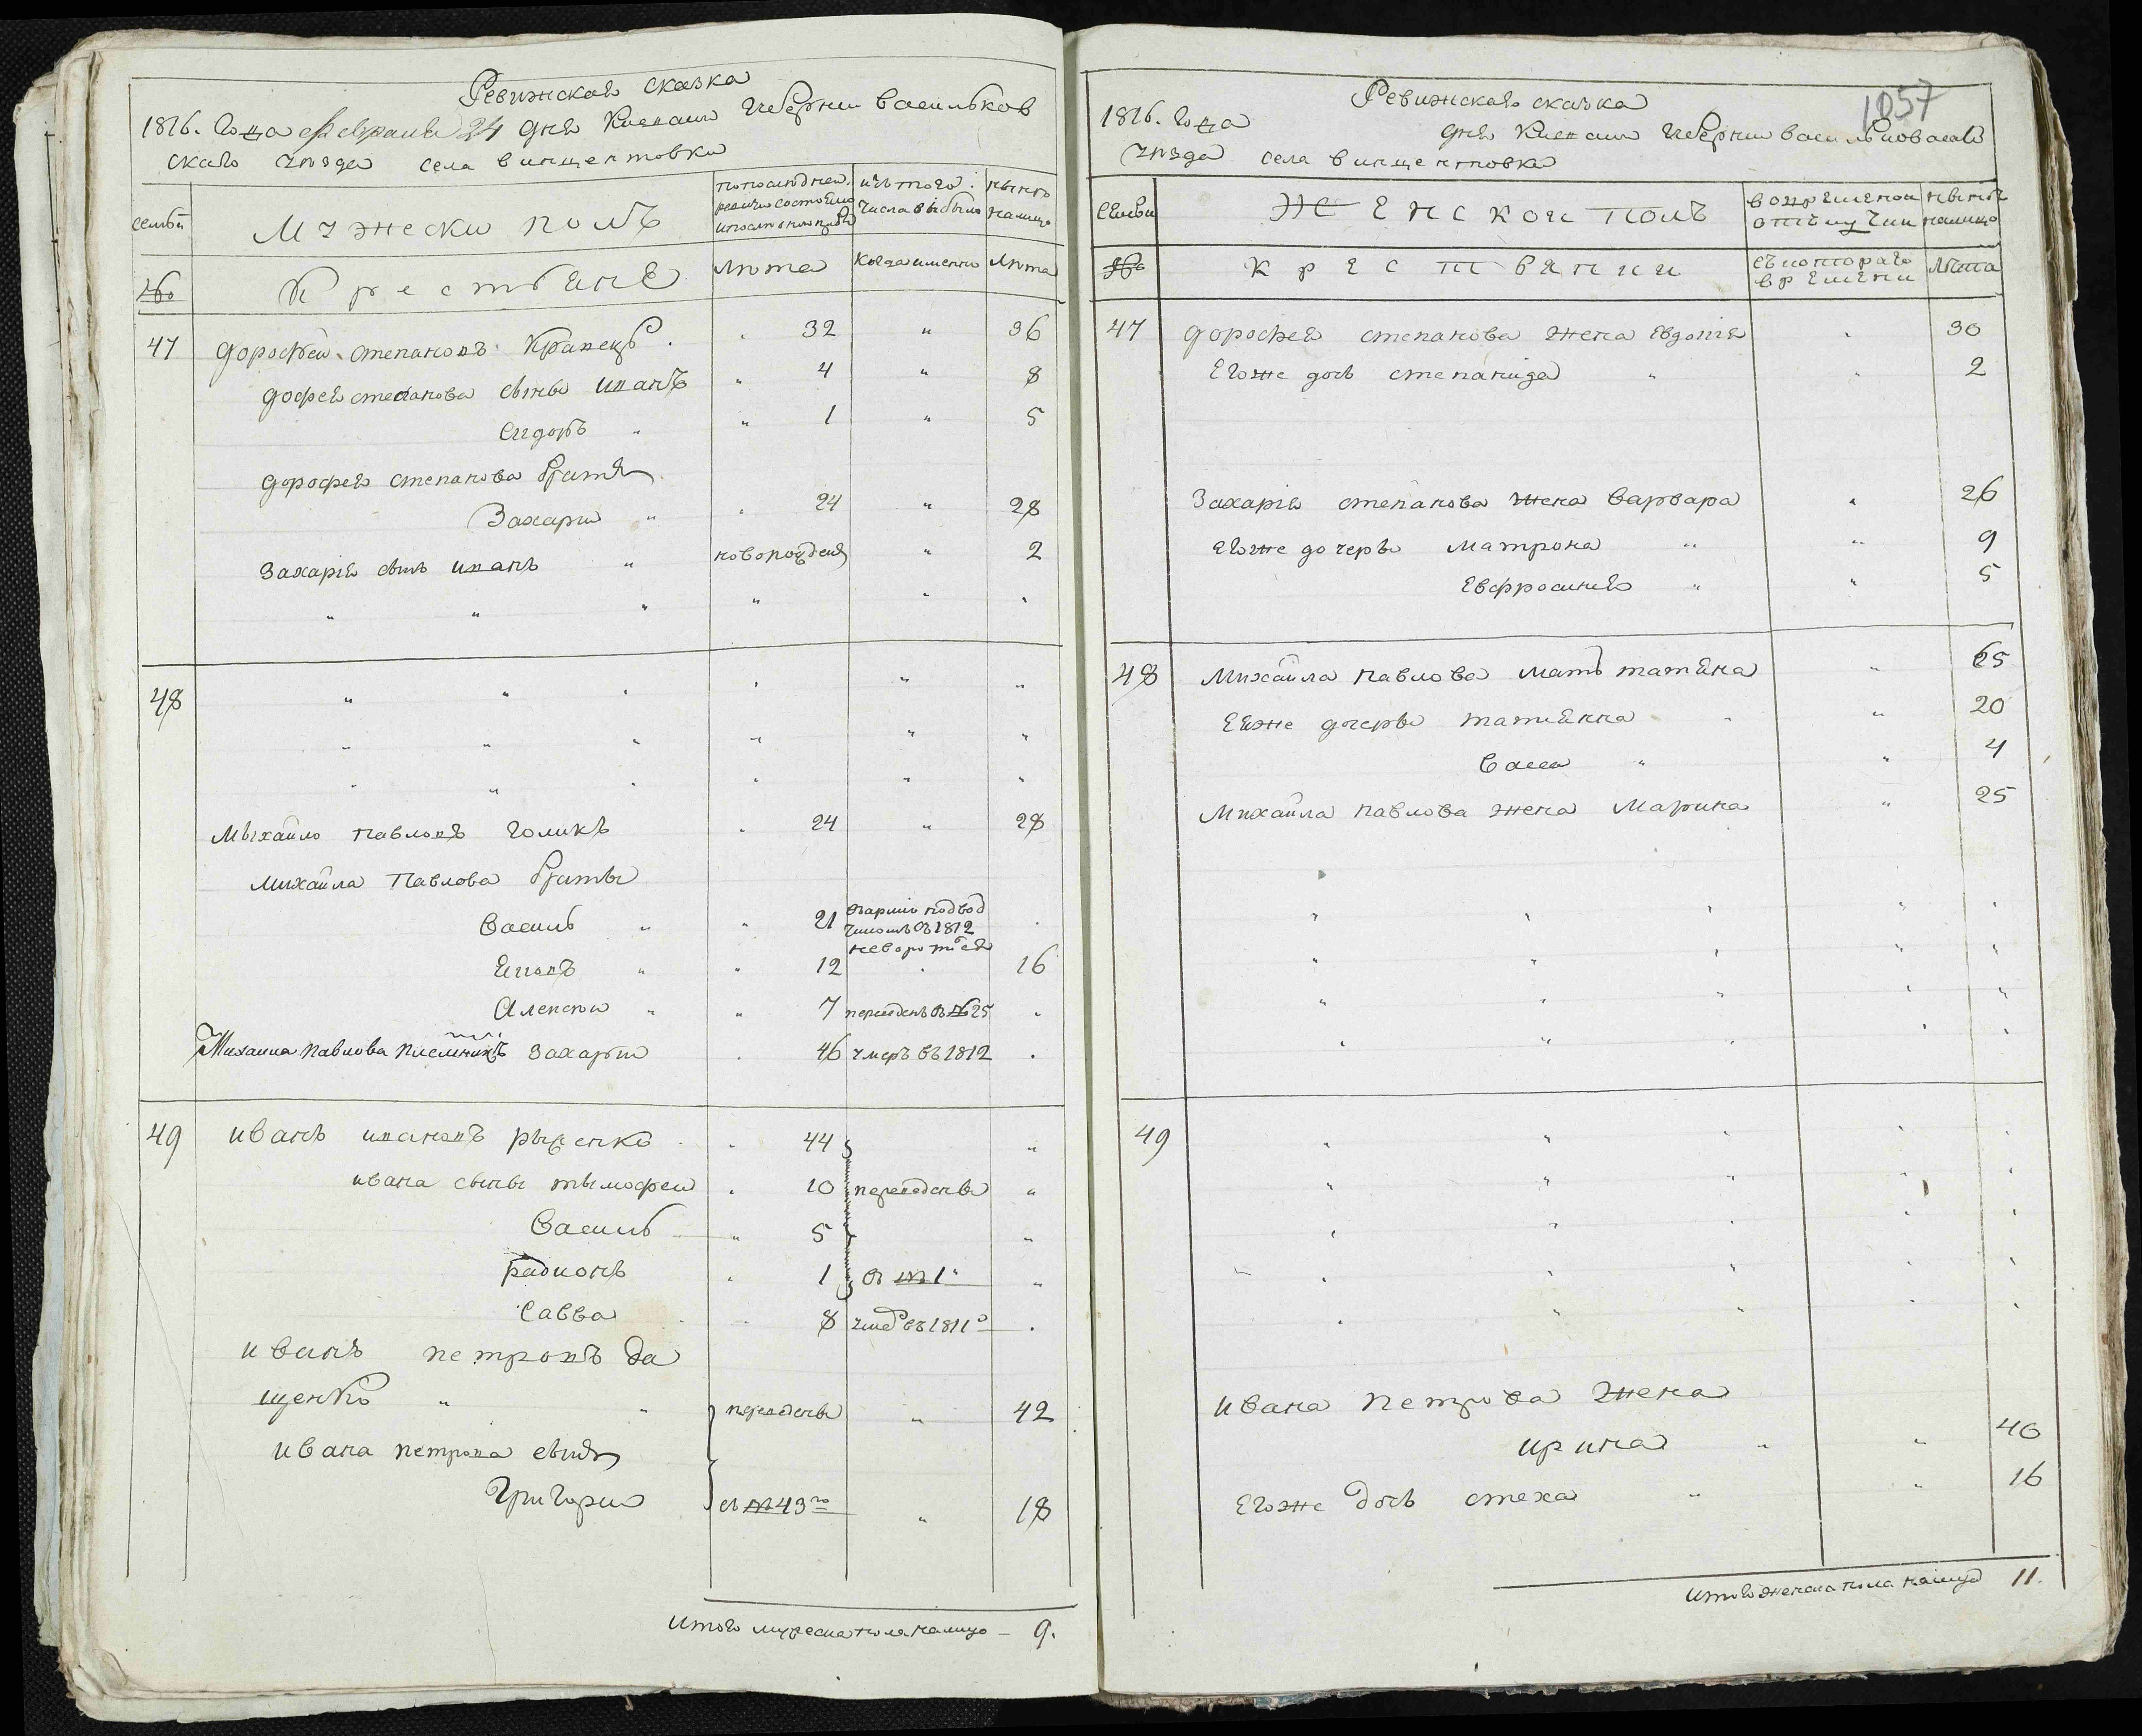 Ревижская сказка
1816. Года февраля 24 дня Киевской Губернии васильков
скаго уѣзда села винцентовки
семьи
Мужески полъ
по последней ревизии состояло и после оной прибыло
изъ того числа выбыло
нынѣ налицо
№
Крестьяне
лѣта
когда именно
лѣта
47 дорофей степановъ Кравецъ . 32 " 36
дофея степанова сыны иванъ " 4 " 8
Сидоръ " " 1 " 5
дорофея степанова братья
Захари " . 24 " 28
Захарія сынъ иванъ " новорожденъ " 2
48
Мыхайло павловъ голикъ . 24 " 28
михайла Павлова браты
Василь " " 21 въ арміи подвод
чикомъ въ 1812
неворотился
Яковъ " " 12 . 16
Алексѣи " " 7 переведенъ въ №25 .
Михаила павлова племникъ захарыи . 46 умеръ въ 1812 .
49 иванъ ивановъ рыженко . . 44 "
ивана сыны тымофеи . 10 переведены "
Василь " 5 "
радионъ . 1 въ №1 "
Савва . 8 умеръ въ 1811 .
иванъ петровъ да
щенко " " переведены " 42
ивана петрова сынъ
григори съ №43го " 18
итого мужеска пола налицо – 9.
1057
Ревижская сказка
1816. года дня Киевской Губернии васильковскаго
уѣзда села винцентовки
Семьи
Женскои полъ
во временной отлучки
нынѣ налицо
№
крестьянки
съ котораго времени
лѣта
47 дорофея степанова жена Евдокія . 30
Егоже дочь степанида " " 2
Захарія степанова жена варвара " 26
Егоже дочеры матрона " " 9
Евфросинія " " 5
48 Михайла павлова мать татяна " 65
Еяже дочеры татиянна " " 20
васса " " 4
Михайла павлова жена Марина " 25
49
ивана петрова жена
ирина " " 40
Егоже дочь стеха " " 16
итого женска пола налицо 11.